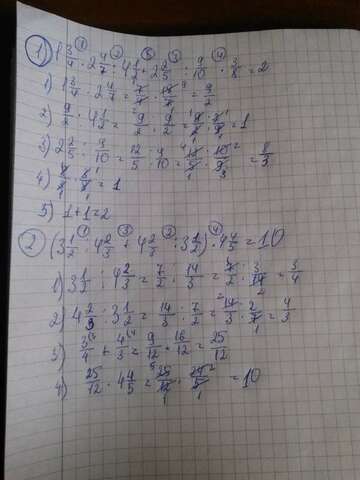 1) 1 3/4 · 2 4/7 : 4 1/2 + 2 2/5 : 9/10 · 3/8 = 2
1) 1 3/4 · 2 4/7 = 7/4 · 18/7 = 9/2
2) 9/2 : 4 1/2 = 9/2 : 9/2 = 9/2 · 2/9 = 1
3) 2 2/5 : 9/10 = 12/5 : 9/10 = 12/5 · 10/9 = 8/3
4) 8/3 · 3/8 = 1
5) 1+1=2
2) (3 1/2 : 4 2/3 + 4 2/3 : 3 1/2) · 4 4/5 = 10
1) 3 1/2 : 4 2/3 = 7/2 : 14/3 = 7/2 · 3/14 = 3/4
2) 4 2/3 : 3 1/2 = 14/3 : 7/2 = 14/3 · 2/7 = 4/3
3) 3/4 + 4/3 = 9/12 + 16/12 = 25/12
4) 25/12 · 4 4/5 = 25/12 · 24/5 = 10